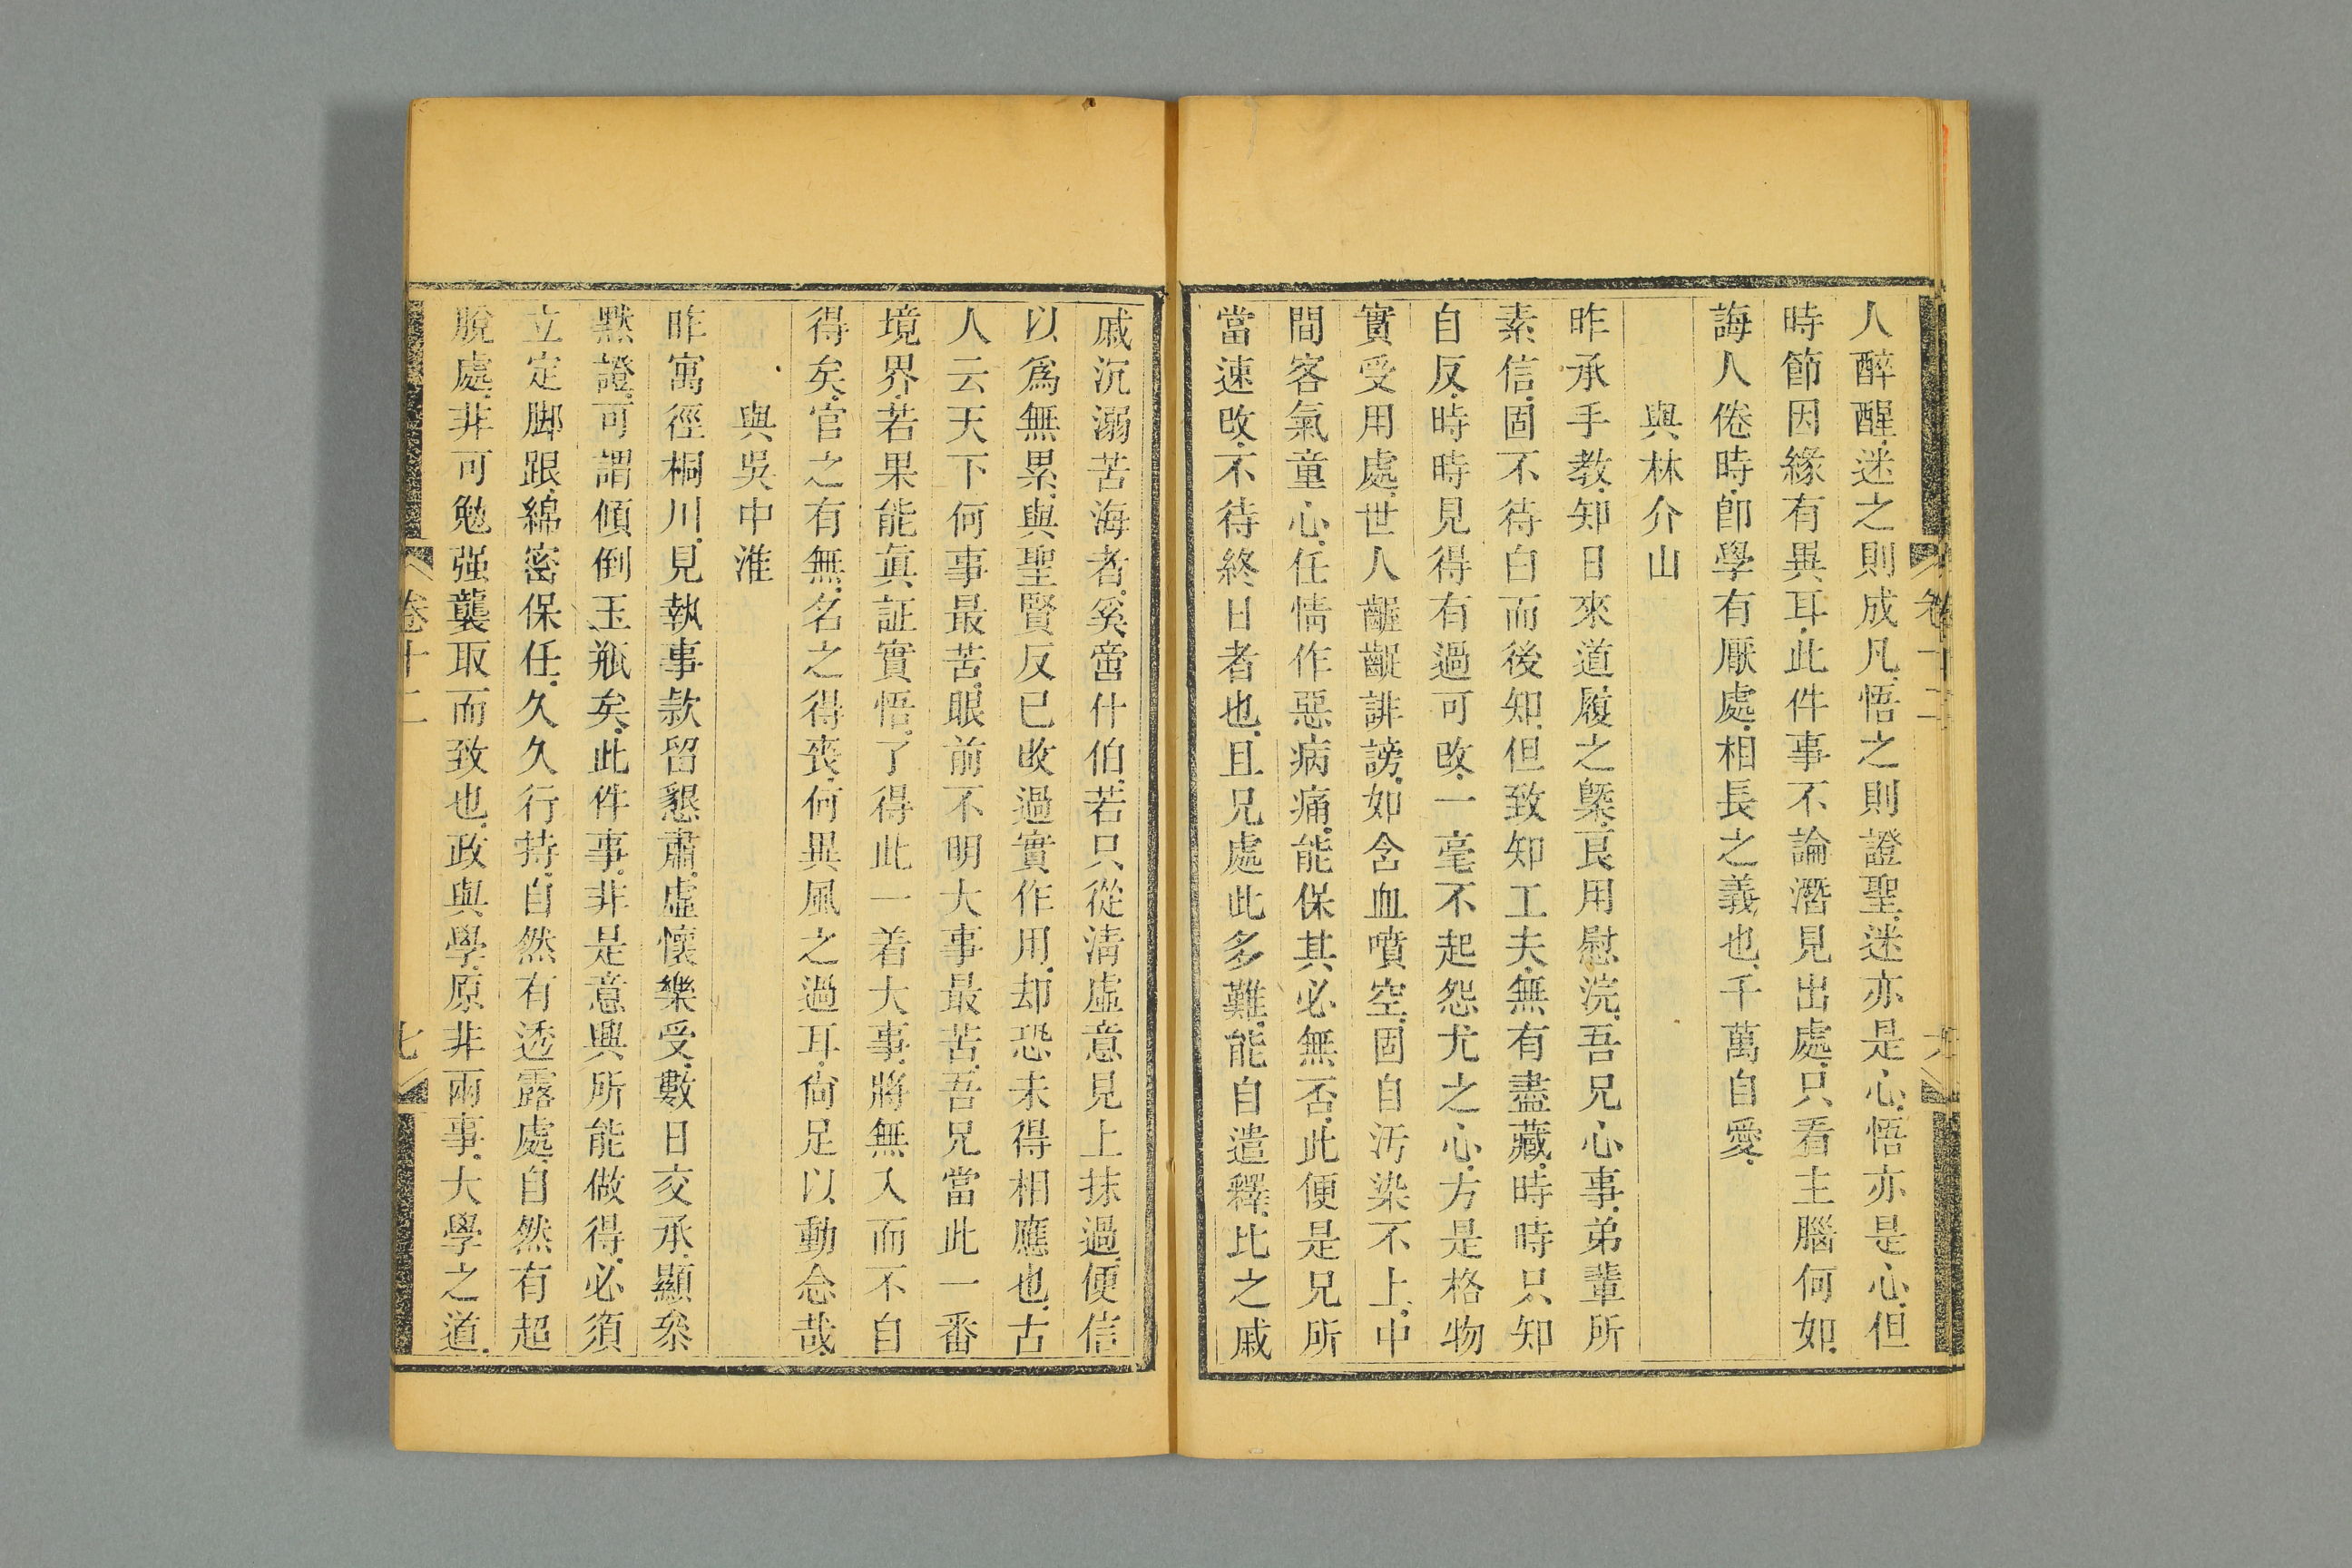 人醉醒迷之則成凡悟之則證聖迷亦是心悟亦是心但
時節因緣有異耳此件事不論潛見出處只看主腦何如
誨人倦時卽學有厭處相長之義也千萬自愛
與林介山
昨承手教知日來道履之槩良用慰浣吾兄心事弟輩所
素信固不待白而後知但致知工夫無有盡藏時時只知
自反時時見得有過可改一毫不起怨尤之心方是格物
實受用處世人齷齪誹謗如含血噴空固自汚染不上中
間客氣童心任情作惡病痛能保其必無否此便是兄所
當速改不待終日者也且兄處此多難能自遣釋比之戚
戚沉溺苦海者奚啻什伯若只從淸虛意見上抹過便信
以爲無累與聖賢反已改過實作用却恐未得相應也古
人云天下何事最苦眼前不明大事最苦吾兄當此一番
境界若果能眞証實悟了得此一着大事將無入而不自
得矣官之有無名之得喪何異風之過耳尙足以動念哉
與吳中淮
昨寓徑桐川見執事款留懇肅虛懷樂受數日交承顯叅
默證可謂傾倒玉瓶矣此件事非是意興所能做得必須
立定脚跟綿密保任久久行持自然有透露處自然有超
脫處非可勉强襲取而致也政與學原非兩事大學之道
卷十二
七